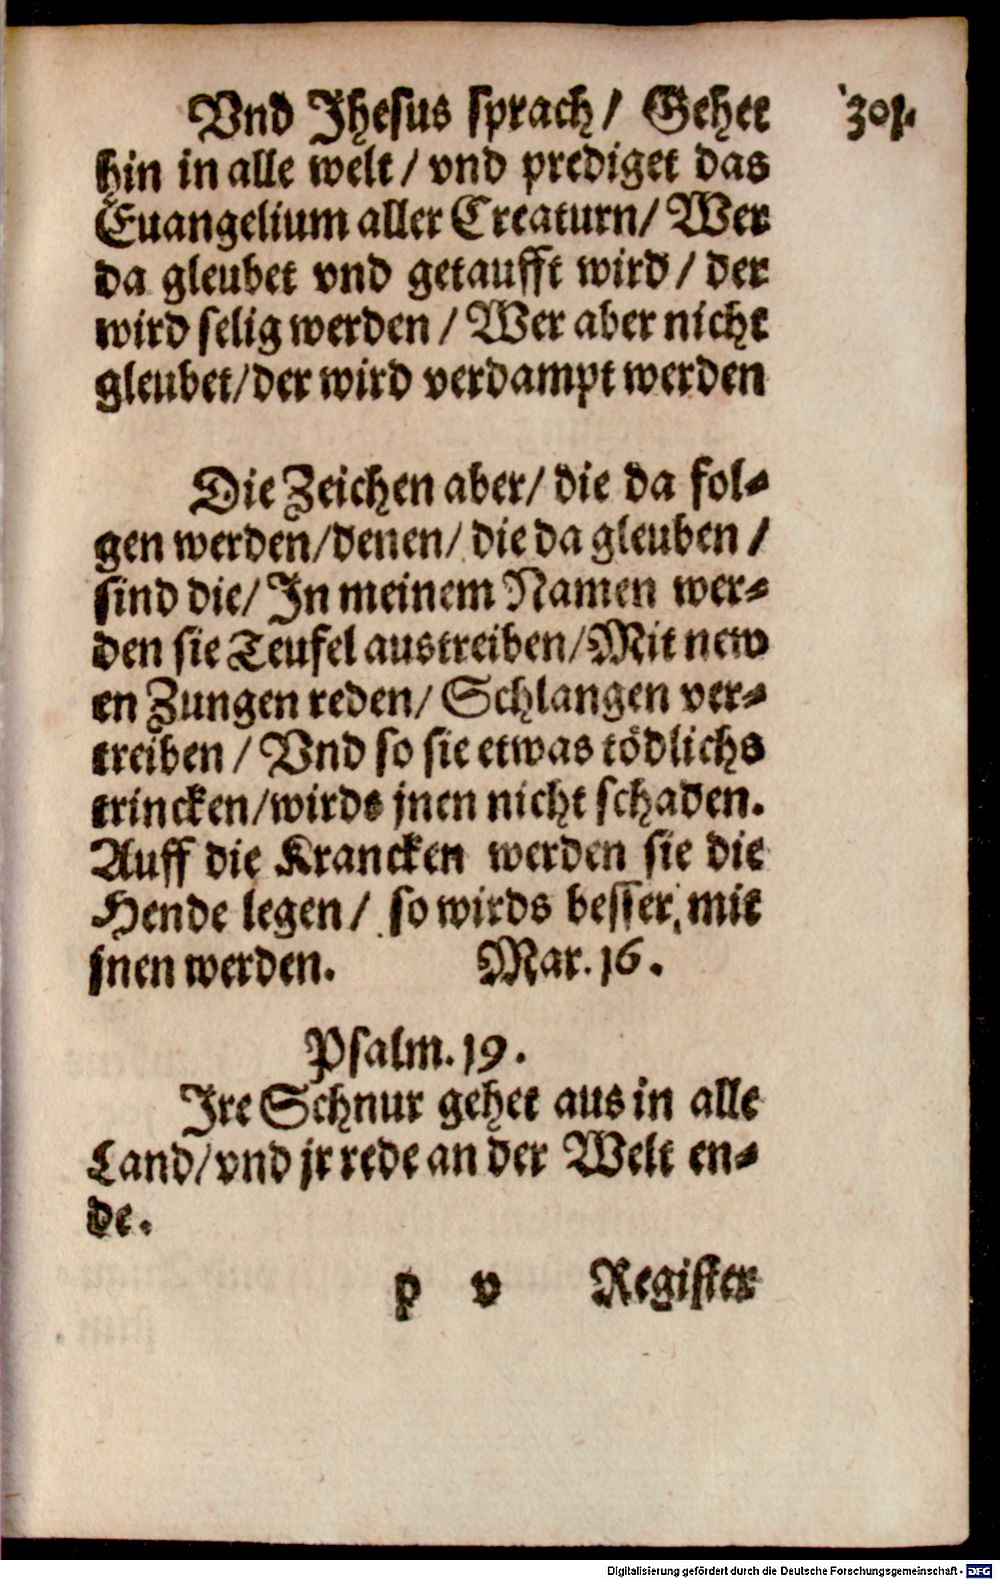 Vnd Jhesus sprach/ Gehet
301.
hin in alle welt/ vnd prediget das
Euangelium aller Creaturn/ Wer
da gleubet vnd getaufft wird/ der
wird selig werden/ Wer aber nicht
gleubet/der wird verdampt werden
Die Zeichen aber/ die da fol⸗
gen werden/denen/ die da gleuben/
sind die/ In meinem Namen wer⸗
den sie Teufel austreiben/Mit new
en Zungen reden/ Schlangen ver⸗
treiben/ Vnd so sie etwas tödlichs
trincken/wirds jnen nicht schaden.
Auff die Krancken werden sie die
Hende legen/ so wirds besser mit
jnen werden. Mar. 16.
Psalm. 19.
Ire Schnur gehet aus in alle
Land/vnd jr rede an der Welt en⸗
de.
p v Register
Digitalisierung gefördert durch die Deutsche Forschungsgemeinschaft - DFG